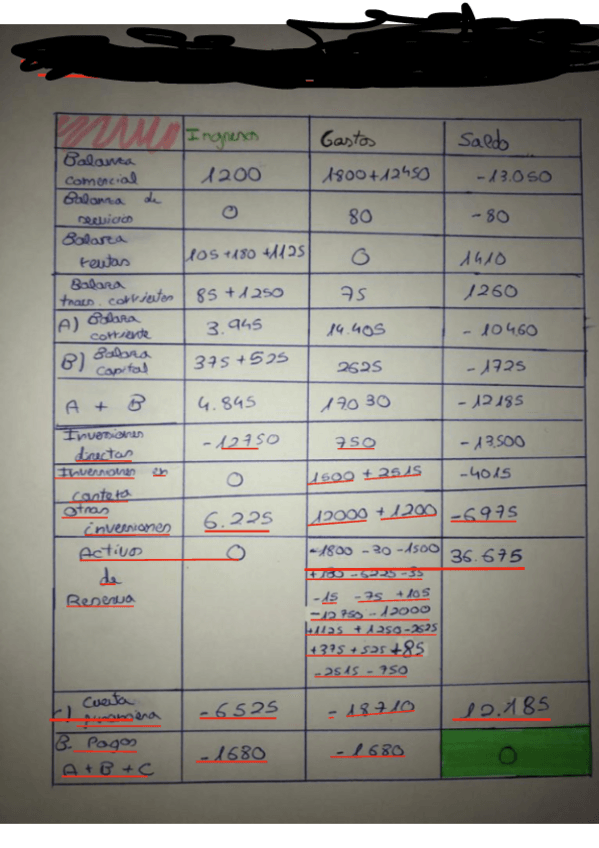 Ingresos Gastos Saldo
Balanza
comercial 1200 1800+12450 -13.050
Balanza de
servicios 0 80 -80
Balanza
rentas 105+180+1125 0 1410
Balanza
trans. corrientes 85+1250 75 1260
A) Balanza
corriente 3.945 14.405 -10460
B) Balanza
capital 375+525 2625 -1725
A + B 4.845 17030 -12185
Inversiones
directas -12750 750 -13.500
Inversiones en
cartera 0 1500+2515 -4015
otras
inversiones 6.225 12000+1200 -6975
Activos 0 -1800 -30 -1500 36.675
de
Reserva -15 -75 +105
-12750 -12000
+1125 +1250-2625
+375+525+85
-2515 -750
C) Cuenta
financiera -6525 -18710 12.185
B. Pagos
A+B+C -1680 -1680 0